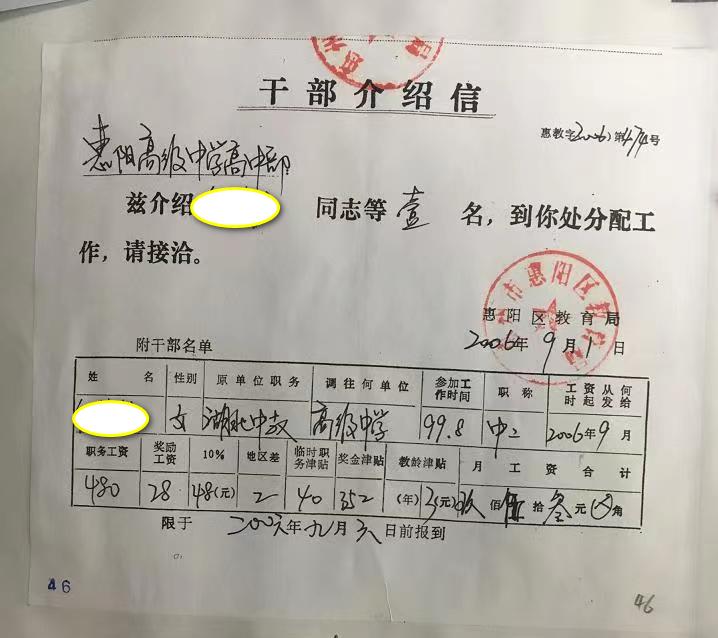 干部介绍信
惠教字(2006)第474号
惠阳高级中学高中部
兹介绍 同志等壹名，到你处分配工
作，请接洽。
市惠阳区教育局
惠阳区教育局
2006年9月1日
附干部名单
姓名 性别 原单位职务 调往何单位 参加工作时间 职称 工资从何时起发给
女 湖北中教 高级中学 99.8 中二 2006年9月
职务工资 奖励工资 10% 地区差 临时职务津贴 奖金津贴 教龄津贴 月工资合计
480 28 48(元) 2 40 352 (年)3(元) 玖佰伍拾叁元 角
限于2006年九月 日前报到
46
46